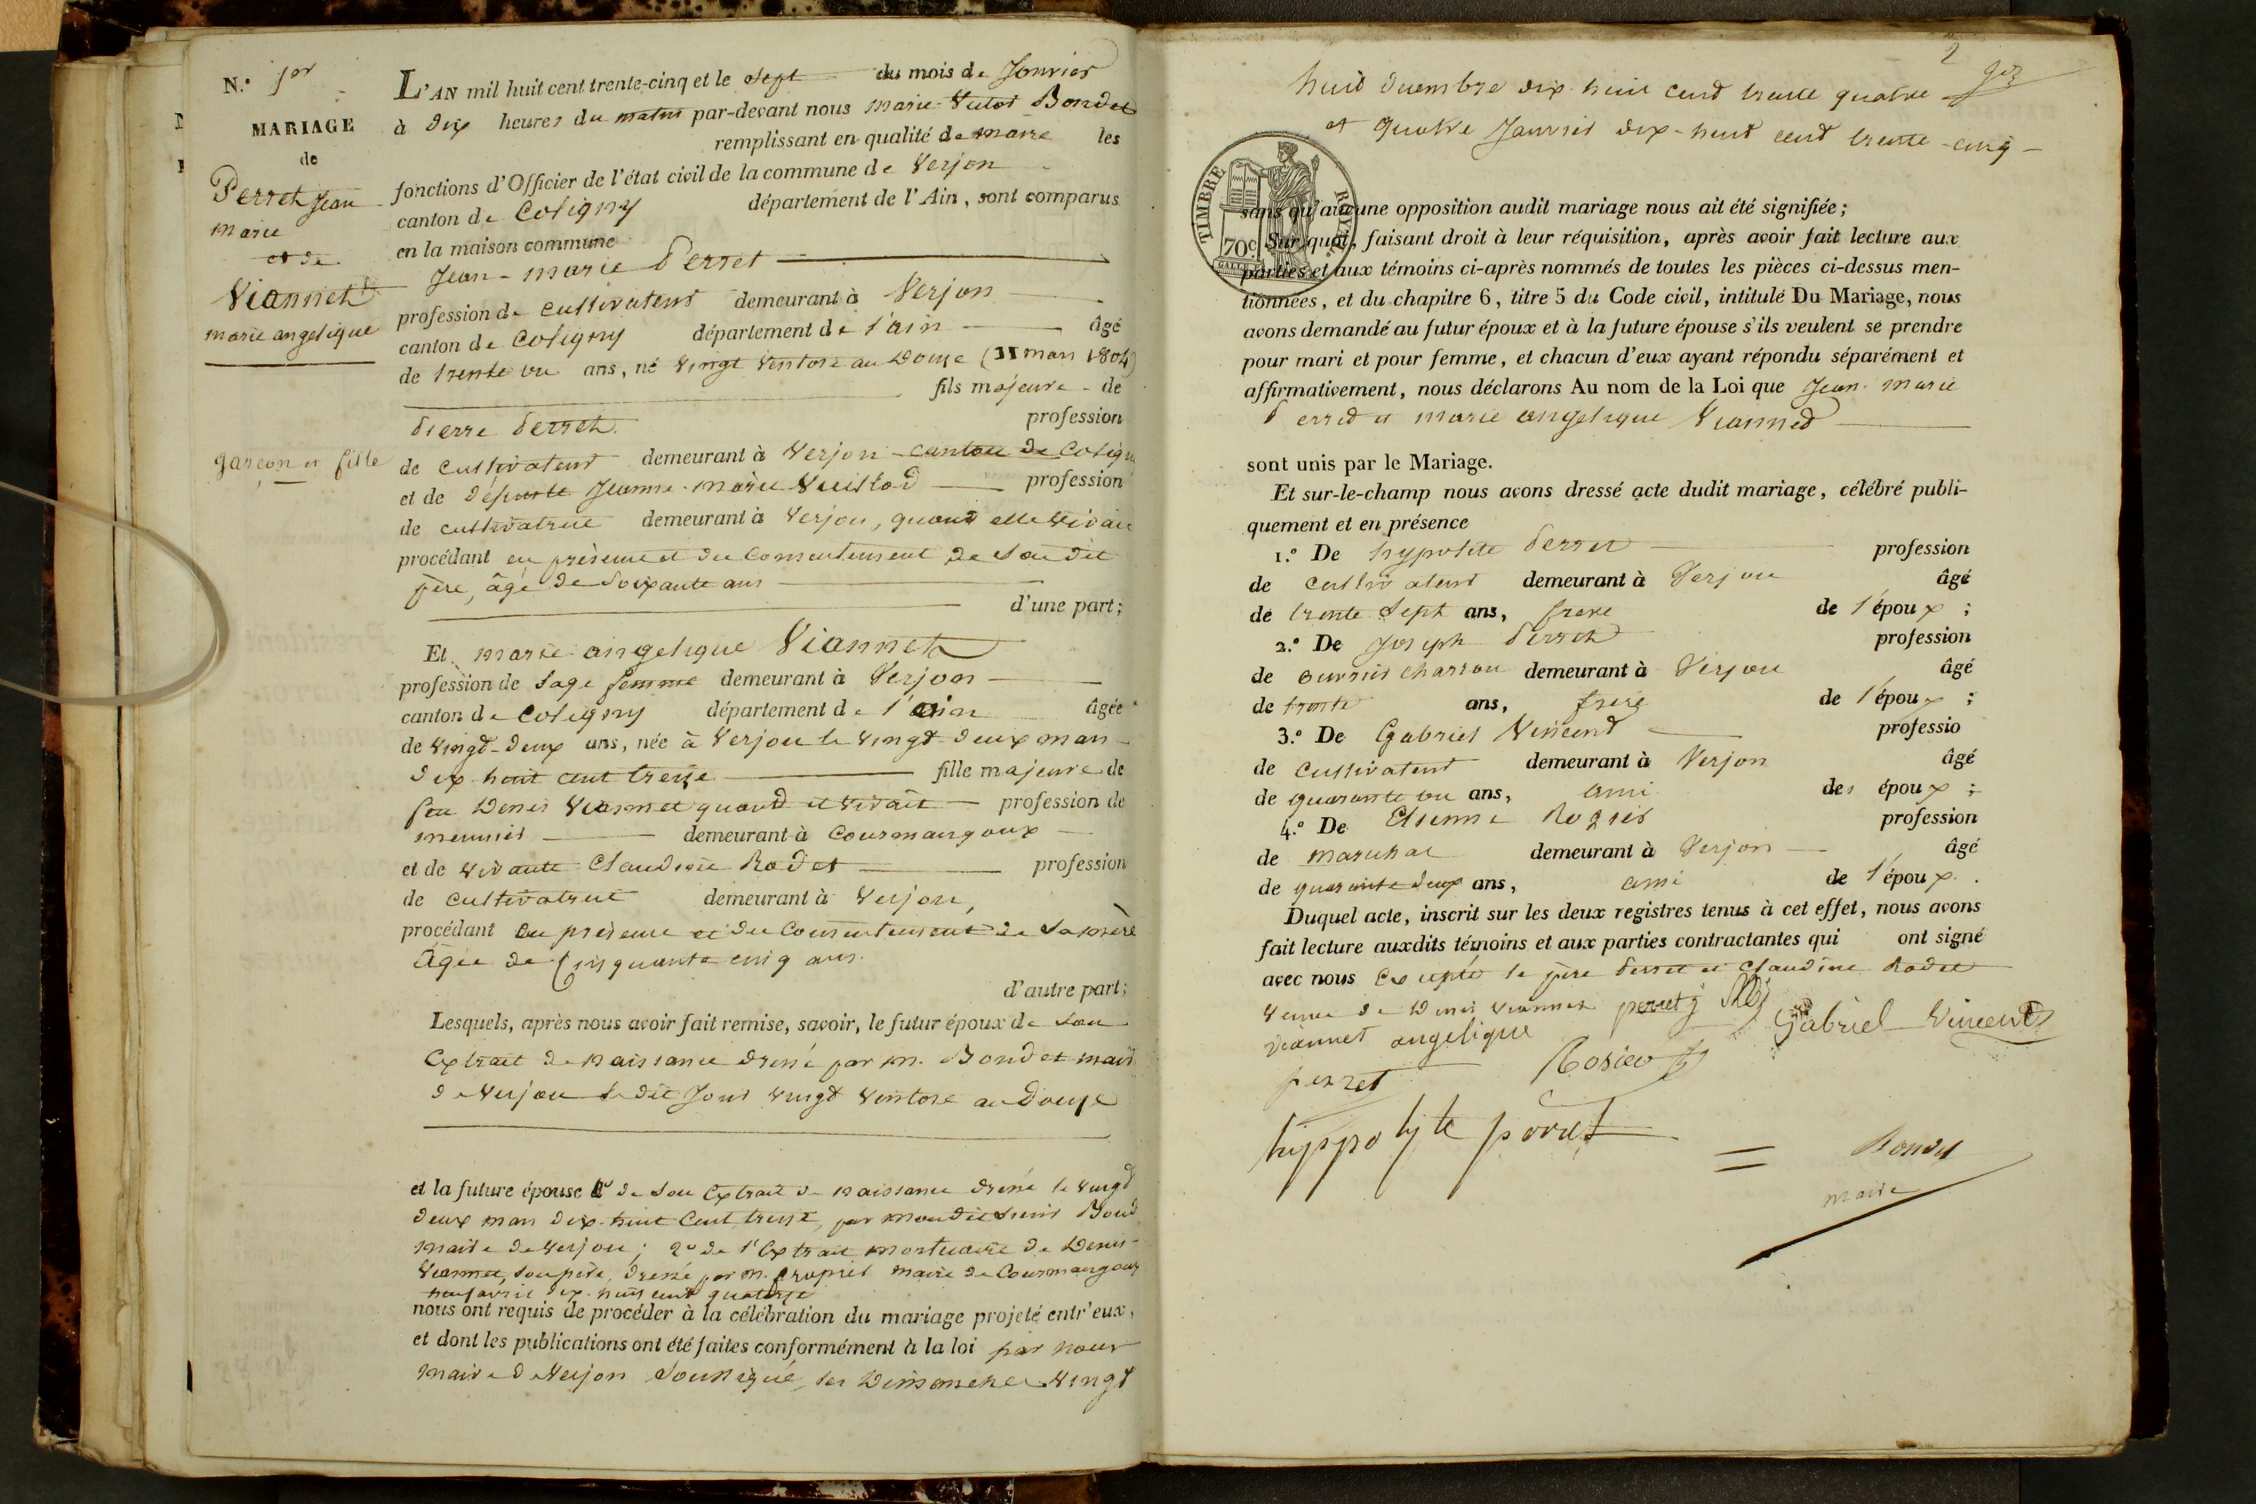 N.º 1er
MARIAGE
de
Perret Jean
marie
et de
Viannet
marie angelique
garçon et fille
L'AN mil huit cent trente-cinq et le sept du mois de Janvier
à dix heures du matin par-devant nous marie Bondet
remplissant en qualité de maire les
fonctions d'Officier de l'état civil de la commune de Verjon
canton de Coligny département de l'Ain, sont comparus
en la maison commune
Jean-marie Perret
profession de cultivateur demeurant à Verjon
canton de Coligny département de l'ain âgé
de trente un ans, né vingt ventose an Douze (11 mars 1804)
fils majeure de
Pierre Perret profession
de cultivateur demeurant à Verjon canton de Coligny
et de défunte Jeanne-marie profession
de cultivatrice demeurant à Verjon, quand elle vivait
procédant en présence et du consentement de son dit
père, âgé de soixante ans
d'une part;
Et marie angelique Viannet
profession de sage femme demeurant à Verjon
canton de Coligny département de l'ain âgée
de vingt-deux ans, née à Verjon le vingt-deux mars
dix huit cent treize fille majeure de
feu Denis Viannet quand il vivait profession de
meunier demeurant à Courmangoux
et de vivante Claudine Rodet profession
de cultivatrice demeurant à Verjon,
procédant en présence et du consentement de sa mère
âgée de cinquante cinq ans.
d'autre part;
Lesquels, après nous avoir fait remise, savoir, le futur époux de son
Extrait de naissance dressé par m. Bondet maire
de Verjon le dit jour vingt ventose an Douze
et la future épouse 1º de son Extrait de naissance dressé le vingt
deux mars dix-huit cent treize, par mondit sieur Bond
maire de Verjon; 2º de l'Extrait mortuaire de Denis
Viannet, son père, dressé par m. maire de Courmangoux
neuf avril dix-huit cent quatorze
nous ont requis de procéder à la célébration du mariage projeté entr'eux,
et dont les publications ont été faites conformément à la loi par nous
maire de Verjon soussigné, les Dimanches vingt
2
huit décembre dix-huit cent trente quatre
et quatre Janvier dix-huit cent trente-cinq
TIMBRE ROYAL
70c.
sans qu'aucune opposition audit mariage nous ait été signifiée;
Sur quoi, faisant droit à leur réquisition, après avoir fait lecture aux
parties et aux témoins ci-après nommés de toutes les pièces ci-dessus men-
tionnées, et du chapitre 6, titre 5 du Code civil, intitulé Du Mariage, nous
avons demandé au futur époux et à la future épouse s'ils veulent se prendre
pour mari et pour femme, et chacun d'eux ayant répondu séparément et
affirmativement, nous déclarons Au nom de la Loi que Jean-marie
Perret et marie angelique Viannet
sont unis par le Mariage.
Et sur-le-champ nous avons dressé acte dudit mariage, célébré publi-
quement et en présence
1.º De hypolite Perret profession
de cultivateur demeurant à Verjon âgé
de trente sept ans, frere de l'époux;
2.º De Joseph Perret profession
de ouvrier charron demeurant à Verjon âgé
de trente ans, frere de l'époux;
3.º De Gabriel Vincent professio
de cultivateur demeurant à Verjon âgé
de quarante un ans, ami des époux;
4.º De Etienne Rogier profession
de marechal demeurant à Verjon âgé
de quarante deux ans, ami de l'époux.
Duquel acte, inscrit sur les deux registres tenus à cet effet, nous avons
fait lecture auxdits témoins et aux parties contractantes qui ont signé
avec nous Excepté le père Perret et Claudine Rodet
veuve de Denis Viannet perret j
Gabriel Vincent
viannet angelique
perret
hyppolyte perret
Bondet
maire